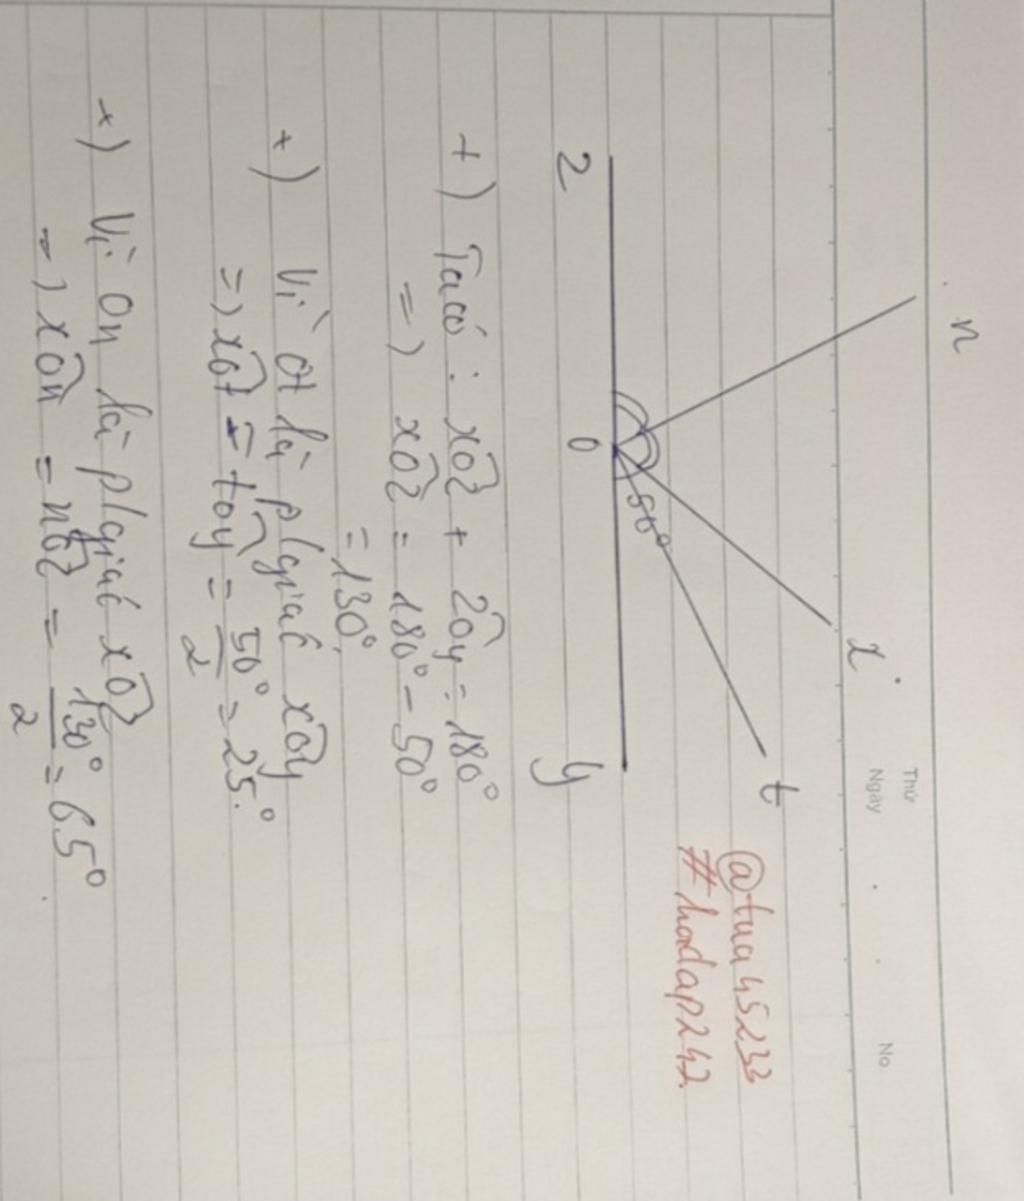 Thứ
Ngày
No
n
x
t
50°
z
O
y
@tua45233
#hoidap247
+) Ta có : xOz + zOy = 180°
=) xOz = 180° - 50°
= 130°.
+) Vì Ot là p/giác xOy
=) xOt = tOy = 50°/2 = 25°
+) Vì On là p/giác xOz
=) xOn = nOz = 130°/2 = 65°